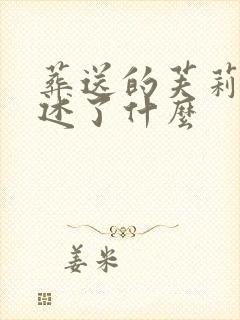 葬送的芙莉
述了什麼
姜米